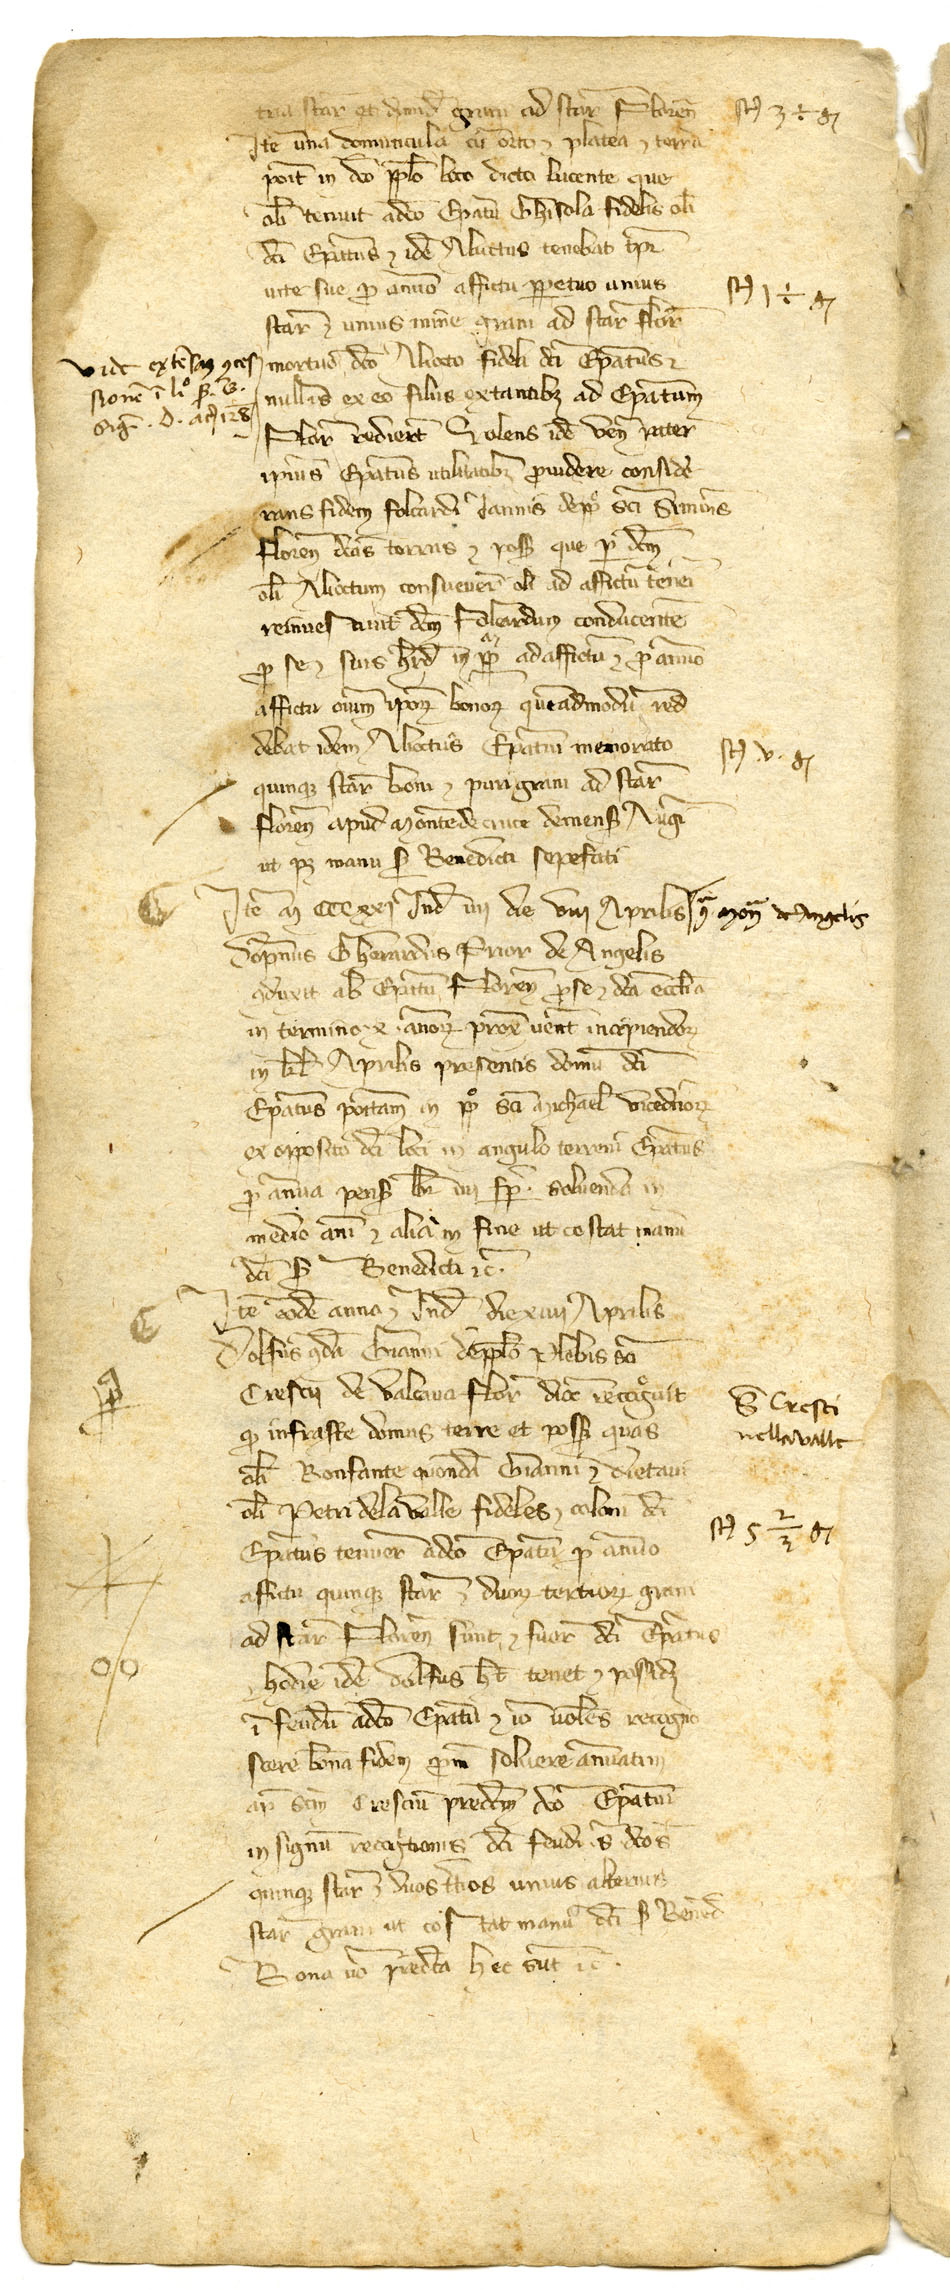 tria star et dimid grani ad star Floren
st 3 ÷ gr
Ite una domuncula cu orto et platea et terra
poit in dco pplo loco dicto lucente que
oli tenuit adco Epatu Ghisola fidelis oli
dci Epatus et ide Aliottus tenebat tpr
vite sue p annuo affictu ppetuo unius
st 1 ÷ gr
star et unius mine grani ad star flor
vide extesam 9ces
sione i li° s. B.
sig. D. ac 128
mortuo dco Aliotto fideli dci Epatus et
nullis ex eo filiis extantibz ad Epatum
Flor redierit Volens ide ven pater
ipius Epatus utilitatibz puidere conside
rans fidem folcardi Iannis de pp° sci Simonis
floren dcas terras et poss que p dcm
oli Aliottum consuever oli ad affictu teneri
reinvestivit dcm Folcardum conducente
p se et suis hrd in pp ad affictu et p annuo
affictu oium ipor bonor queadmodu red
debat idem Aliottus Epatui memorato
st . v . gr
quinqz star boni et puri grani ad star
floren apud Monte de cruce de mens Augi
ut pz manu S Benedicti sepefati
Ite M CCCxxi Ind iiii die viii Aprilis
mon de Angelis
Dopnus Gherardus Prior de Angelis
9duxit ab Epatu Floren p se et dca ecclia
in termino x annor prox vent incipiendor
in kl Aprilis presentis domu dci
Epatus poitam in pp° sci Michael vicednor
ex opposito dci loci in angulo terreni Epatus
p annua pens lbr iiii fp. solvenda in
medio ani et alia in fine ut costat manu
dci S Benedicti etc.
Ite eode anno et Ind die xiiii Aprilis
Dolfus 9da Gianni de pplo Plebis sci
Crescii de Valcava Flor dioc recognovit
S Cresci
nella valle
qz infrascte domus terre et poss quas
oli Bonfante quonda Gianni et Dietavi
oli Petri dela valle fideles et coloni dci
st 5 2/3 gr
Epatus tenuer adco Epatu p annuo
affictu quinqz star et duor tertior grani
ad star Floren sunt et fuer dci Epatus
et hodie ide Dolfus ht tenet et possidz
i feudu adco Epatu et io volens recogno
scere bona fidem pm solvere annuatim
ap scm Cresciu predcm dco Epatui
in signu recognitionis dci feudi s dcos
quinqz star et duos ttios unius alterius
star grani ut costat manu dci S Bened
Bona vo predcta hec sut etc.